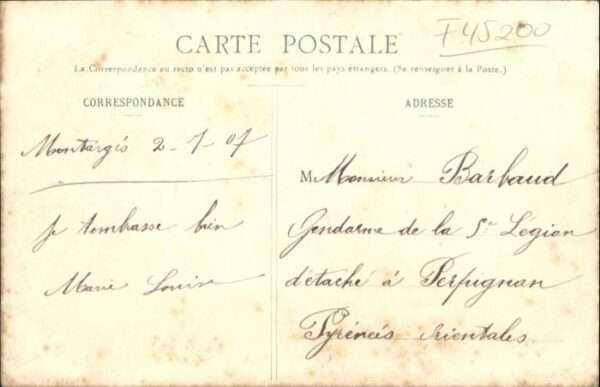 F45200
CARTE POSTALE
La Correspondance au recto n'est pas acceptée par tous les pays étrangers. (Se renseigner à la Poste.)
CORRESPONDANCE
ADRESSE
Montargis 2-7-07
Je t'embrasse bien
Marie Louise
M. Monsieur Barbaud
Gendarme de la 5e Légion
détaché à Perpignan
Pyrénées orientales